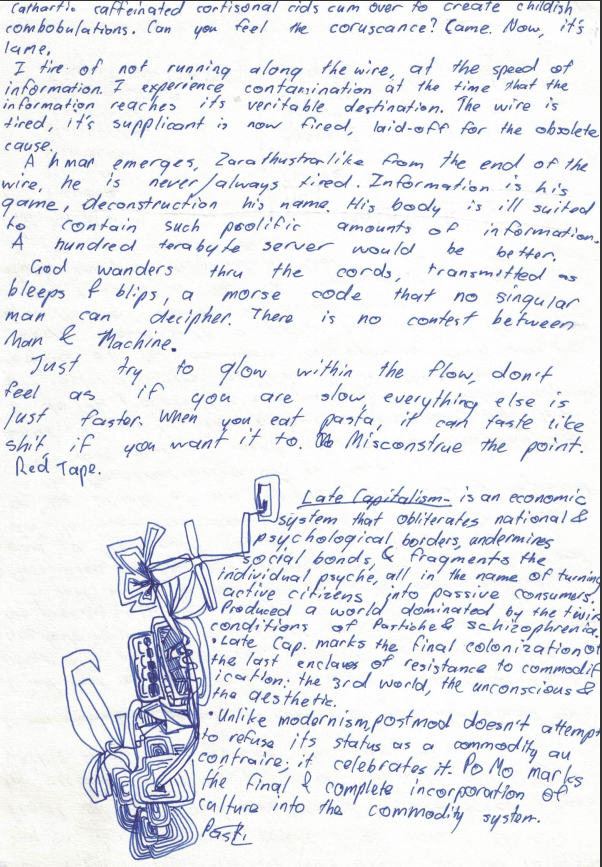 Cathartic caffeinated cortisonal cids cum over to create childish
combobulations. Can you feel the coruscance? Came. Now, it's
lame.
I tire of not running along the wire, at the speed of
information. I experience contamination at the time that the
information reaches its veritable destination. The wire is
tired, it's supplicant is now fired, laid-off for the obsolete
cause.
A hman emerges, Zarathustralike from the end of the
wire, he is never/always tired. Information is his
game, deconstruction his name. His body is ill suited
to contain such prolific amounts of information.
A hundred terabyte server would be better.
God wanders thru the cords, transmitted as
bleeps & blips, a morse code that no singular
man can decipher. There is no contest between
Man & Machine.
Just try to glow within the flow, don't
feel as if you are slow, everything else is
just faster. When you eat pasta, it can taste like
shit if you want it to. Misconstrue the point.
Red Tape.
Late Capitalism - is an economic
system that obliterates national &
psychological borders, undermines
social bonds, & fragments the
individual psyche, all in the name of turning
active citizens into passive consumers.
Produced a world dominated by the twin
conditions of Pastiche & schizophrenia.
• Late Cap. marks the final colonization of
the last enclaves of resistance to commodif
ication: the 3rd world, the unconscious &
the aesthetic.
• Unlike modernism, postmod doesn't attempt
to refuse its status as a commodity au
contraire; it celebrates it. Po Mo marks
the final & complete incorporation of
culture into the commodity system.